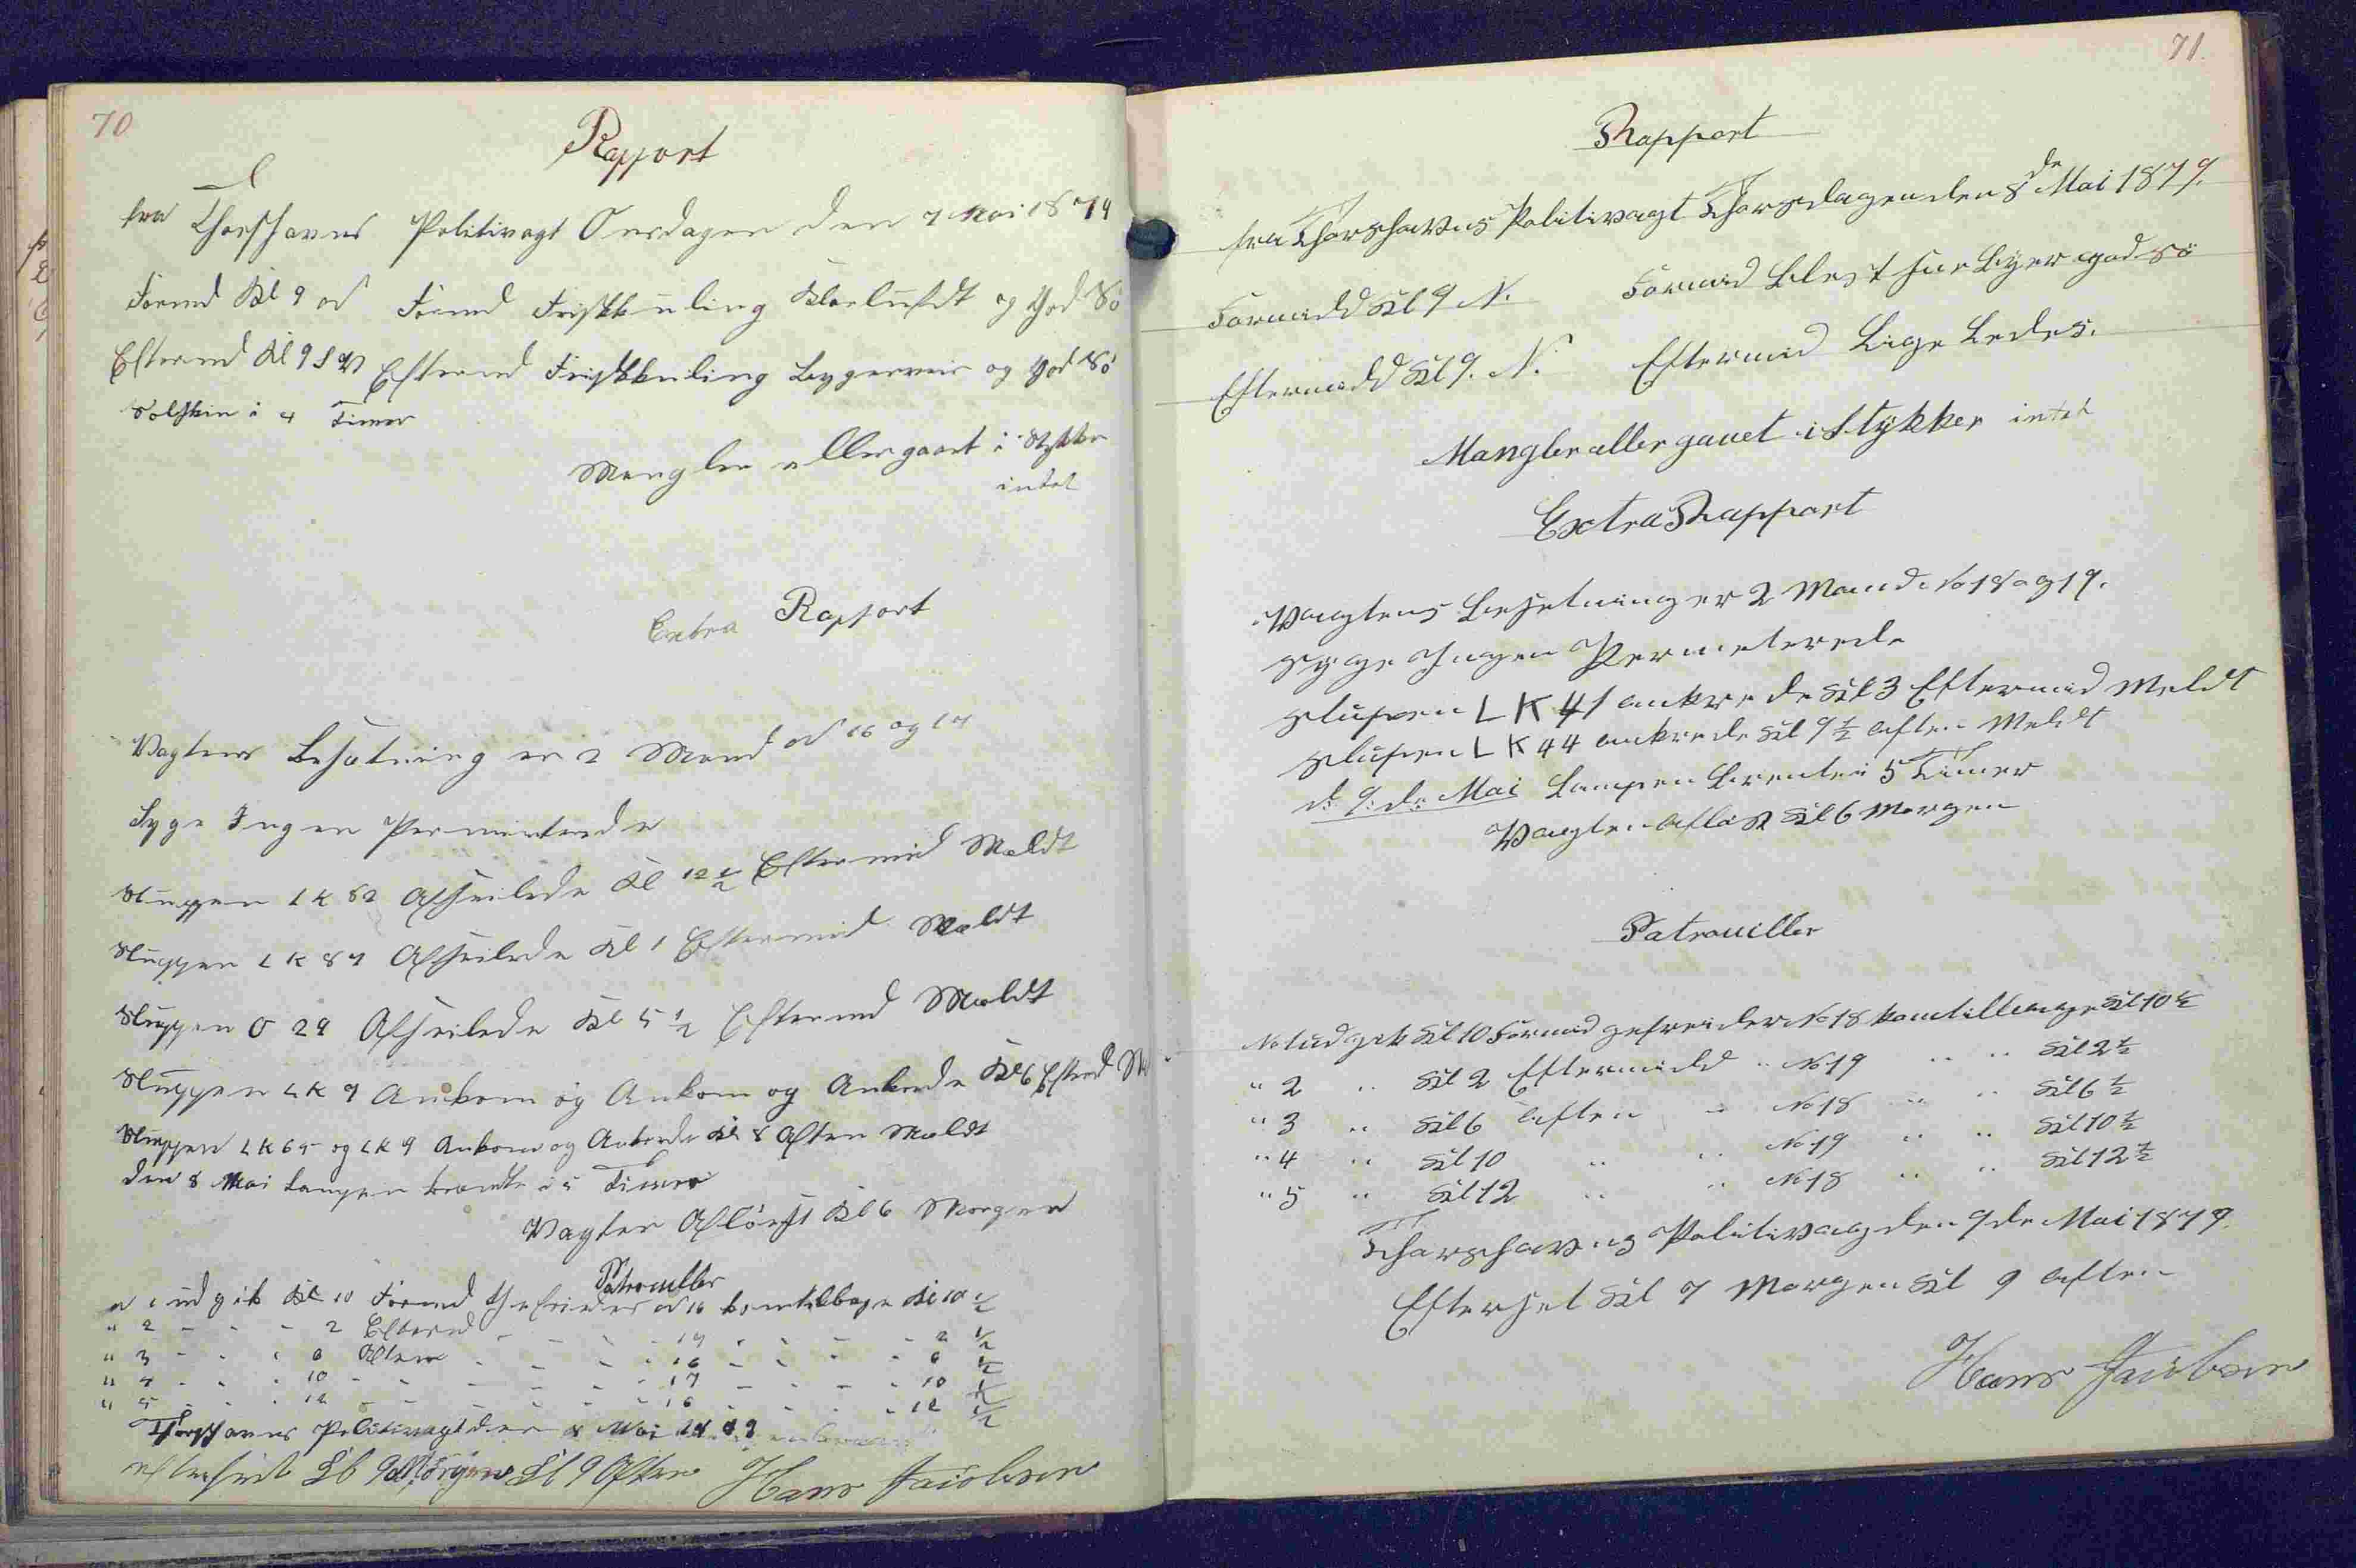 70
Rapport
fra Thorshavns Politivagt Onsdagen den 7 Mai 1879
Formd Kl 9 Formd Friskkuling Klarluft og God Sö
Eftermd Kl 9 S V Eftermd Friskkuling Bygerveir og God Sö
Solskin i 4 Timer
Mangler eller gaaet i Stykker
intet
Extra Rapport
Vagtens Besætning er 2 Mand No 16 og 17
Syge Ingen Permiterede
Sluppen LK 82 Afseilede Kl 12 1/2 Eftermid Meldt
Sluppen LK 87 Afseilede Kl 1 Eftermid Meldt
Sluppen O 29 Afseilede Kl 5 1/2 Eftermd Meldt
Sluppen LK 9 Ankom og Ankom og Ankrede Kl 6 Eftermd
Sluppen LK 65 og LK 9 Ankom og Ankrede Kl 8 Aften Meldt
den 8 Mai Lampen brændte i 5 Timer
Vagten Aflöst Kl 6 Morgen
Patrouiller
N 1 udgik Kl 10 Formd Gefreider No 16 kom tilbage Kl 10 1/2
" 2 - - - 2 Eftermd - - - - 17 - - - - 2 1/2
" 3 - - - 6 Aften - - - - 16 - - - - 6 1/2
" 4 - - - 10 - - - - - 17 - - - - 10 1/2
" 5 - - - 12 - - - - - 16 - - - - 12 1/2
Thorshavns Politivagt den 8 Mai 1879
efterseet Kl 9 Morgen Kl 9 Aften Hans Jacobsen
71.
Rapport
fra Thorshavns Politivagt Thorsdagen den 8de Mai 1879.
Formidd Kl 9 N. Formid Blest Sne Byer god Sö
Eftermidd Kl 9. N. Eftermid Lige Ledes.
Mangler eller gaaet i Stykker intet
Extra Rapport
Vagtens Besetning er 2 Mand No 18 og 19.
Syge Ingen Permeterede
Slupen LK 41 ankrede Kl 3 Eftermid Meldt
Slupen LK 44 ankrede Kl 9 1/2 Aften Meldt
d: 9:de Mai Lampen Brente i 5 Timer
Vagten Aflöst Kl 6 Morgen
Patrouiller
No 1 udgik Kl 10 Formid gefreider No 18 kom tilbage Kl 10 1/2
" 2 " Kl 2 Eftermidd " No 19 " " Kl 2 1/2
" 3 " Kl 6 Aften " No 18 " " Kl 6 1/2
" 4 " Kl 10 " " No 19 " " Kl 10 1/2
" 5 " Kl 12 " " No 18 " " Kl 12 1/2
Thorshavns Politivag den 9de Mai 1879.
Efterset Kl 7 Morgen Kl 9 Aften
Hans Jacobsen